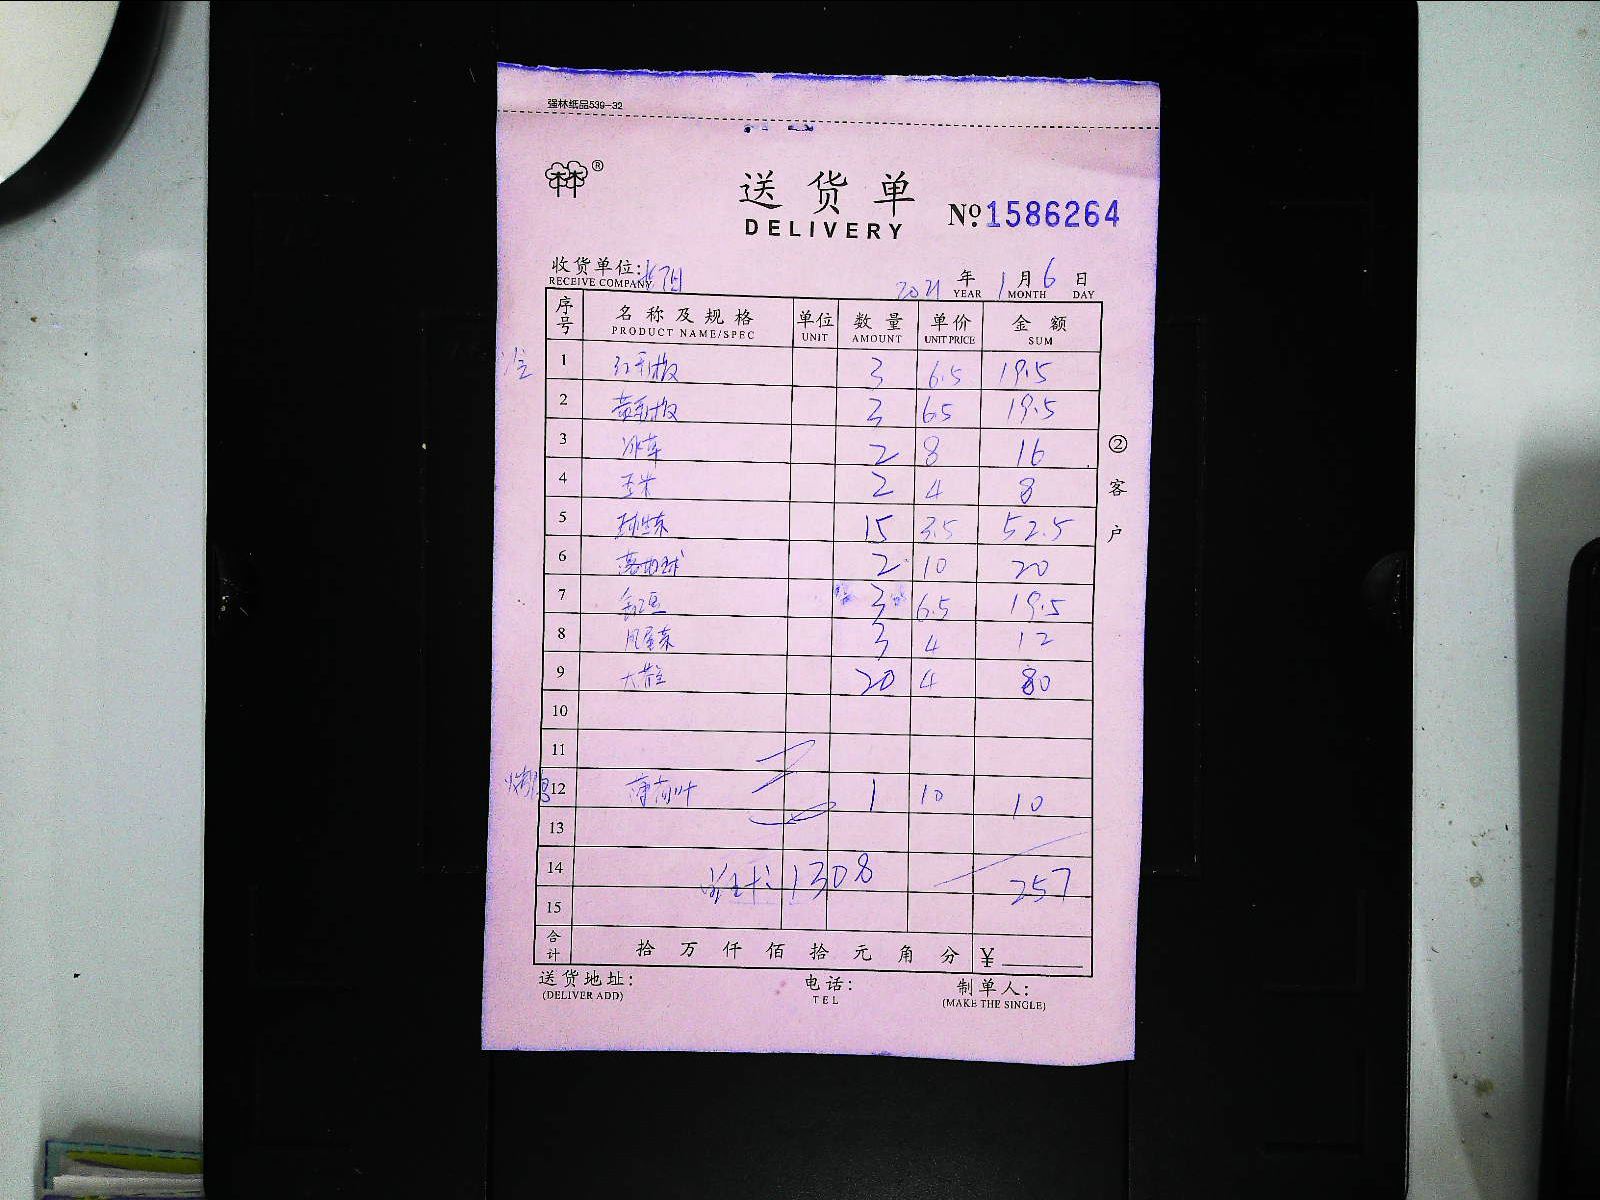 强林纸品539-32
®
送货单
DELIVERY
№ 1586264
收货单位:
RECEIVE COMPANY
2021 年 1 月 6 日
YEAR MONTH DAY
序号 名称及规格 单位 数量 单价 金额
PRODUCT NAME/SPEC UNIT AMOUNT UNIT PRICE SUM
1 红彩椒 3 6.5 19.5
2 黄彩椒 3 6.5 19.5
3 冰草 2 8 16
4 玉米 2 4 8
5 15 3.5 52.5
6 2 10 20
7 3 6.5 19.5
8 3 4 12
9 20 4 80
10
11
12 薄荷叶 1 10 10
13
14 1308 257
15
合计 拾 万 仟 佰 拾 元 角 分 ¥
送货地址: 电话: 制单人:
(DELIVER ADD) TEL (MAKE THE SINGLE)
②客户